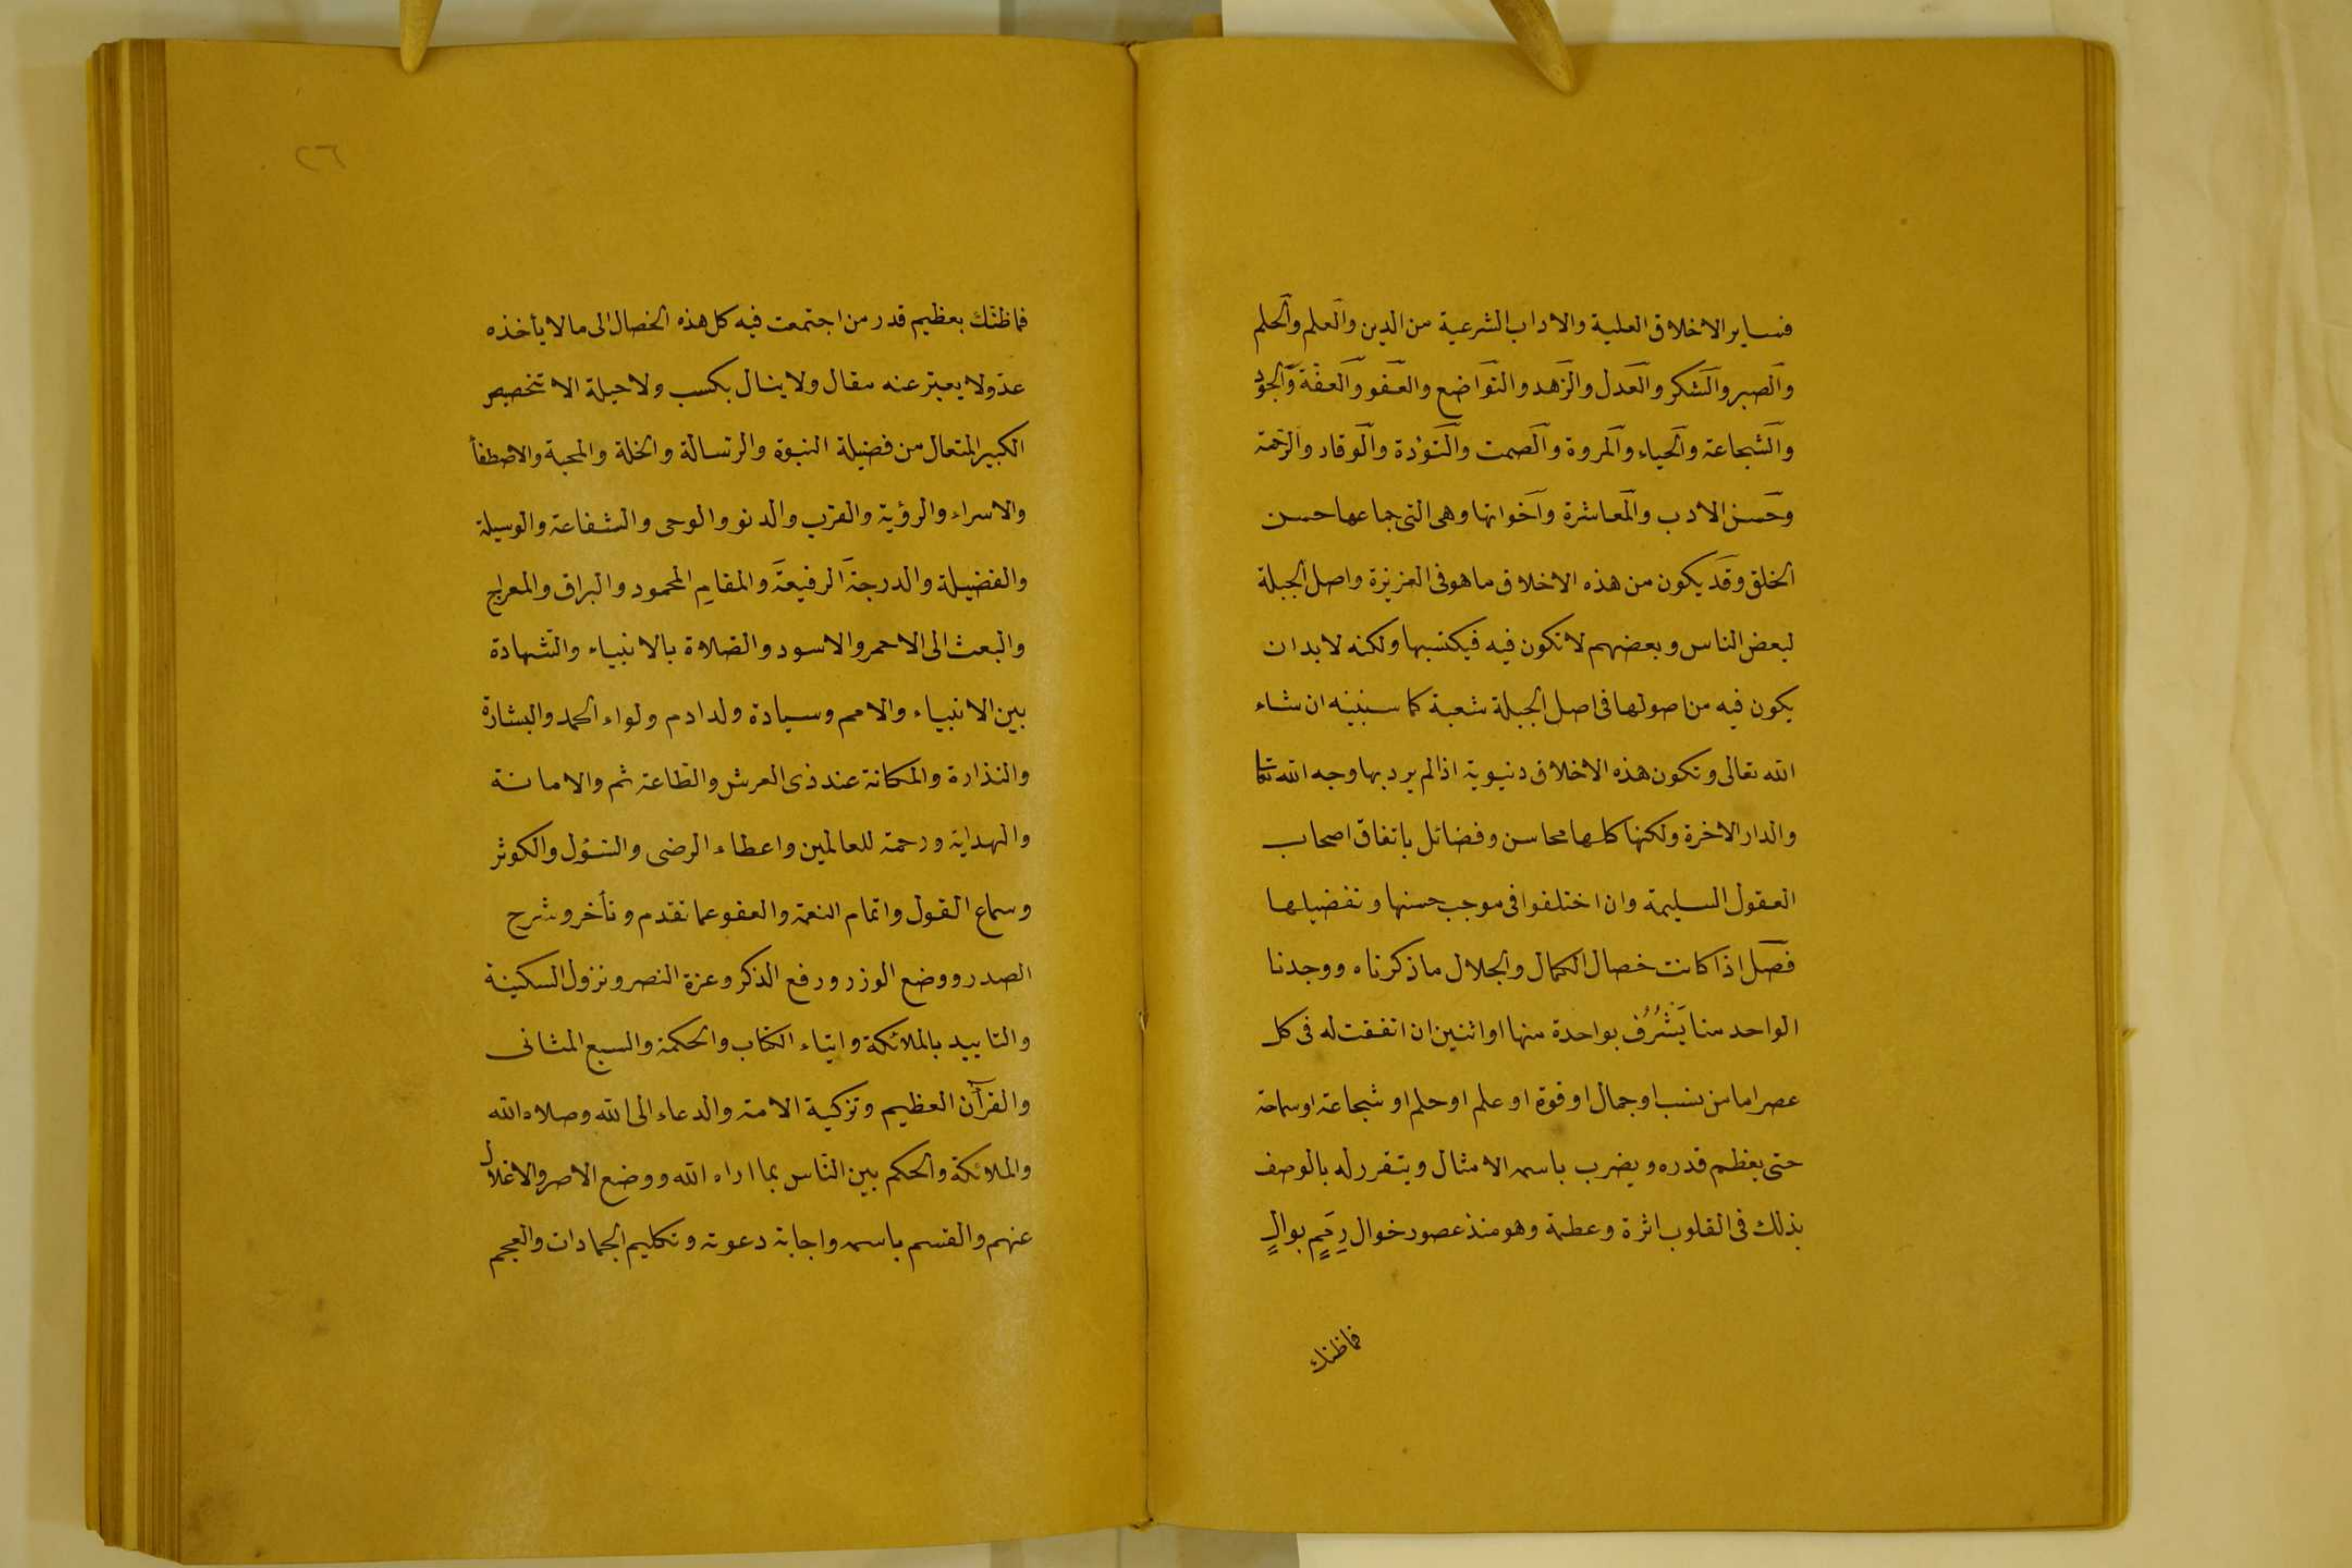 فساير الاخلاق العلية والاداب الشرعية من الدين والعلم والحلم
والصبر والشكر والعدل والزهد والتواضع والعفو والعفة والجود
والشجاعة والحياء والمروة والصمت والتؤدة والوقار والرحمة
وحسن الادب والمعاشرة واخواتها وهى التى جماعها حسن
الخلق وقد يكون من هذه الاخلاق ما هو فى الغريزة واصل الجبلة
لبعض الناس وبعضهم لا تكون فيه فيكتسبها ولكنه لا بد ان
يكون فيه من اصولها فى اصل الجبلة شعبة كما سنبينه ان شاء
الله تعالى وتكون هذه الاخلاق دنيوية اذا لم يرد بها وجه الله تعالى
والدار الاخرة ولكنها كلها محاسن وفضائل باتفاق اصحاب
العقول السليمة وان اختلفوا فى موجب حسنها وتفضيلها
فصل اذا كانت خصال الكمال والجلال ما ذكرناه ووجدنا
الواحد منا يَشْرُف بواحدة منها او اثنين ان اتفقت له فى كل
عصر اما من نسب او جمال او قوة او علم او حلم او شجاعة او سماحة
حتى يعظم قدره ويضرب باسمه الامثال ويتقرر له بالوصف
بذلك فى القلوب اثرة وعظمة وهو منذ عصور خوال رِمَمٍ بوالٍ
فما ظنك
٢٦
فما ظنك بعظيم قدر من اجتمعت فيه كل هذه الخصال الى ما لا يأخذه
عدّ ولا يعبر عنه مقال ولا ينال بكسب ولا حيلة الا بتخصيص
الكبير المتعال من فضيلة النبوة والرسالة والخلة والمحبة والاصطفأ
والاسراء والرؤية والقرب والدنو والوحى والشفاعة والوسيلة
والفضيلة والدرجة الرفيعة والمقام المحمود والبراق والمعراج
والبعث الى الاحمر والاسود والصلاة بالانبياء والشهادة
بين الانبياء والامم وسيادة ولد ادم ولواء الحمد والبشارة
والنذارة والمكانة عند ذى العرش والطاعة ثم والامانة
والهداية ورحمة للعالمين واعطاء الرضى والسؤل والكوثر
وسماع القول واتمام النعمة والعفو عما تقدم وتأخر وشرح
الصدر ووضع الوزر ورفع الذكر وعزة النصر ونزول السكينة
والتاييد بالملائكة وايتاء الكتاب والحكمة والسبع المثانى
والقرآن العظيم وتزكية الامة والدعاء الى الله وصلاة الله
والملائكة والحكم بين الناس بما اراه الله ووضع الاصر والاغلال
عنهم والقسم باسمه واجابة دعوته وتكليم الجمادات والعجم